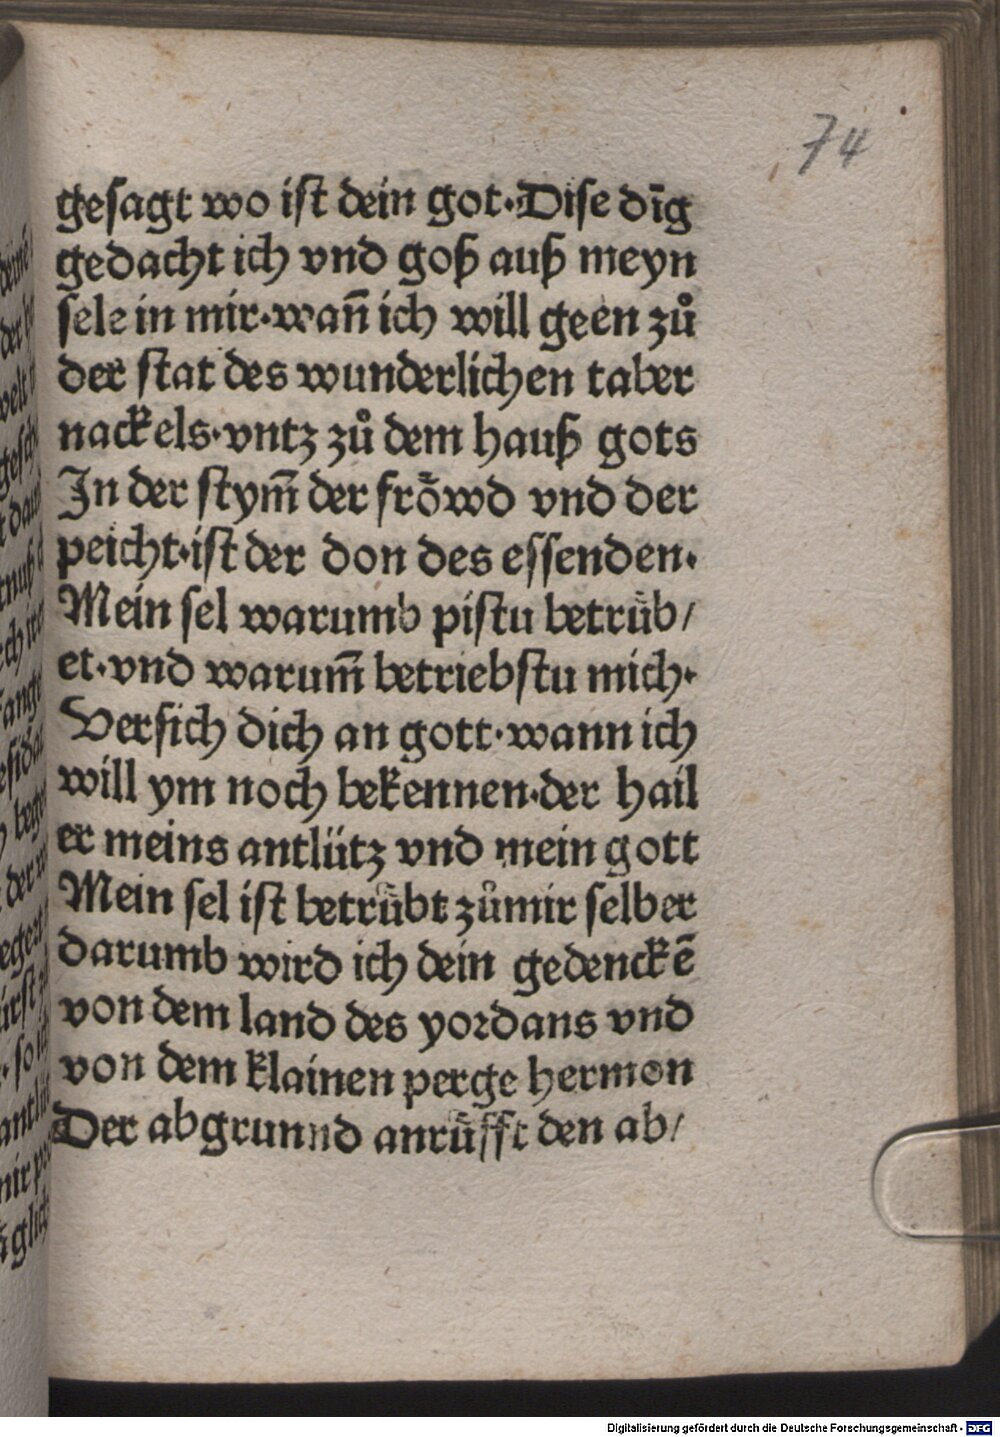 74
gesagt wo ist dein got·Dise dīg
gedacht ich vnd goß auß meyn
sele in mir·wañ ich will geen zů
der stat des wunderlichen taber
nackels·vntz zů dem hauß gots
In der stym̄ der frȫwd vnd der
peicht·ist der don des essenden·
Mein sel warumb pistu betrüb/
et·vnd warum̄ betriebstu mich·
Versich dich an gott·wann ich
will ym noch bekennen·der hail
er meins antlütz vnd mein gott
Mein sel ist betrübt zůmir selber
darumb wird ich dein gedenckē
von dem land des yordans vnd
von dem klainen perge hermon
Der abgrunnd anrüfft den ab/
Digitalisierung gefördert durch die Deutsche Forschungsgemeinschaft - DFG